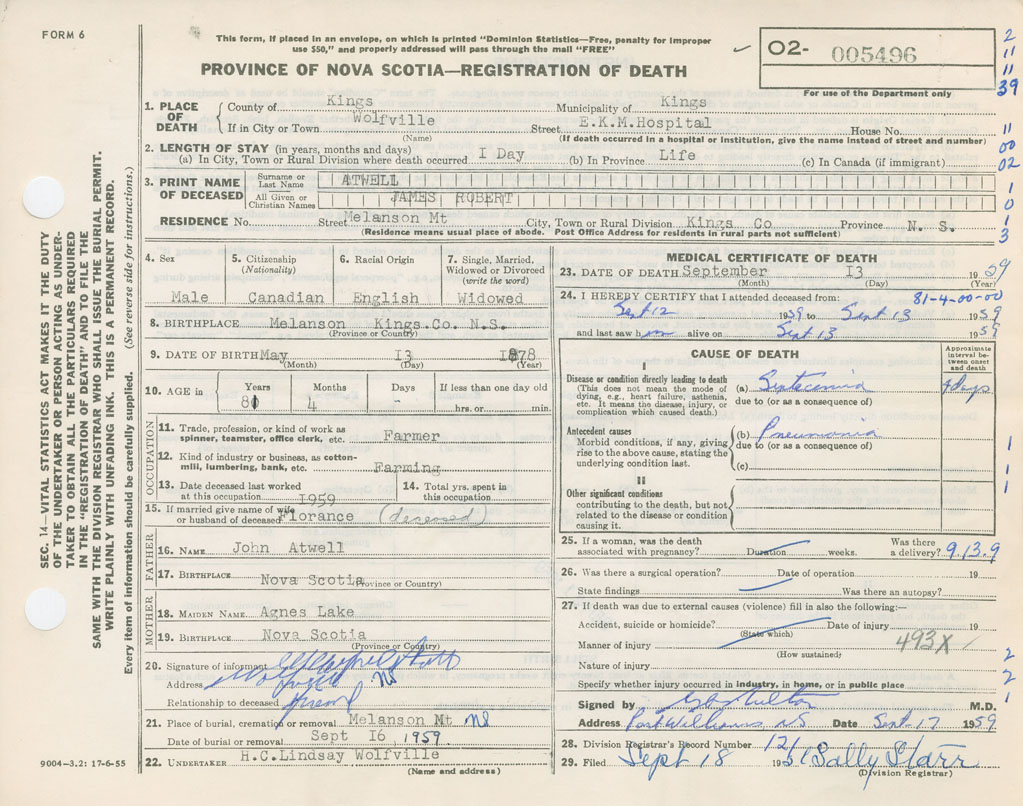 FORM 6
This form, if placed in an envelope, on which is printed "Dominion Statistics—Free, penalty for improper
use $50," and properly addressed will pass through the mail "FREE"
PROVINCE OF NOVA SCOTIA—REGISTRATION OF DEATH
02- 005496
For use of the Department only
2
11
11
39
11
00
02
1
0
1
3
1. PLACE OF DEATH
County of Kings Municipality of Kings
If in City or Town Wolfville Street E.K.M.Hospital House No.
(Name) (If death occurred in a hospital or institution, give the name instead of street and number)
2. LENGTH OF STAY (in years, months and days)
(a) In City, Town or Rural Division where death occurred I Day (b) In Province Life (c) In Canada (if immigrant)
3. PRINT NAME OF DECEASED
Surname or Last Name ATWELL
All Given or Christian Names JAMES ROBERT
RESIDENCE No. Street Melanson Mt City, Town or Rural Division Kings Co Province N. S.
(Residence means usual place of abode. Post Office Address for residents in rural parts not sufficient)
4. Sex
Male
5. Citizenship
(Nationality)
Canadian
6. Racial Origin
English
7. Single, Married,
Widowed or Divorced
(write the word)
Widowed
8. BIRTHPLACE Melanson Kings.Co. N.S.
(Province or Country)
9. DATE OF BIRTH May I3 1878
(Month) (Day) (Year)
10. AGE in
Years Months Days If less than one day old
81 4 - hrs. or min.
OCCUPATION
11. Trade, profession, or kind of work as
spinner, teamster, office clerk, etc. Farmer
12. Kind of industry or business, as cotton-
mill, lumbering, bank, etc. Farming
13. Date deceased last worked
at this occupation 1959
14. Total yrs. spent in
this occupation
15. If married give name of wife
or husband of deceased Florance (deceased)
FATHER
16. NAME John Atwell
17. BIRTHPLACE Nova Scotia
(Province or Country)
MOTHER
18. MAIDEN NAME Agnes Lake
19. BIRTHPLACE Nova Scotia
(Province or Country)
20. Signature of informant
Address Wolfville NS
Relationship to deceased friend
21. Place of burial, cremation or removal Melanson Mt NS
Date of burial or removal Sept I6, 1959.
22. UNDERTAKER H.C.Lindsay Wolfville
(Name and address)
9004-3.2: 17-6-55
MEDICAL CERTIFICATE OF DEATH
23. DATE OF DEATH September I3 1959
(Month) (Day) (Year)
24. I HEREBY CERTIFY that I attended deceased from: 81-4-00-00
Sept 12 1959 to Sept 13 1959
and last saw him alive on Sept 13 1959
CAUSE OF DEATH
Approximate
interval be-
tween onset
and death
I
Disease or condition directly leading to death
(This does not mean the mode of
dying, e.g., heart failure, asthenia,
etc. It means the disease, injury, or
complication which caused death.)
(a) Septicemia 4 days
due to (or as a consequence of)
Antecedent causes
Morbid conditions, if any, giving
rise to the above cause, stating the
underlying condition last.
(b) Pneumonia
due to (or as a consequence of)
(c)
II
Other significant conditions
contributing to the death, but not
related to the disease or condition
causing it.
1
1
1
25. If a woman, was the death
associated with pregnancy? Duration weeks. Was there
a delivery? 9.13.9
26. Was there a surgical operation? Date of operation 19
State findings Was there an autopsy?
27. If death was due to external causes (violence) fill in also the following:—
Accident, suicide or homicide? Date of injury 19
(State which)
Manner of injury 493X
(How sustained)
Nature of injury
Specify whether injury occurred in industry, in home, or in public place
2
2
1
Signed by M.D.
Address Port Williams, NS Date Sept. 17 1959
28. Division Registrar's Record Number 121
29. Filed Sept 18 195 Sally Starr
(Division Registrar)
SEC. 14—VITAL STATISTICS ACT MAKES IT THE DUTY
OF THE UNDERTAKER OR PERSON ACTING AS UNDER-
TAKER TO OBTAIN ALL THE PARTICULARS REQUIRED
IN THE "REGISTRATION OF DEATH" AND TO FILE THE
SAME WITH THE DIVISION REGISTRAR WHO SHALL ISSUE THE BURIAL PERMIT.
WRITE PLAINLY WITH UNFADING INK. THIS IS A PERMANENT RECORD.
Every item of information should be carefully supplied. (See reverse side for instructions.)